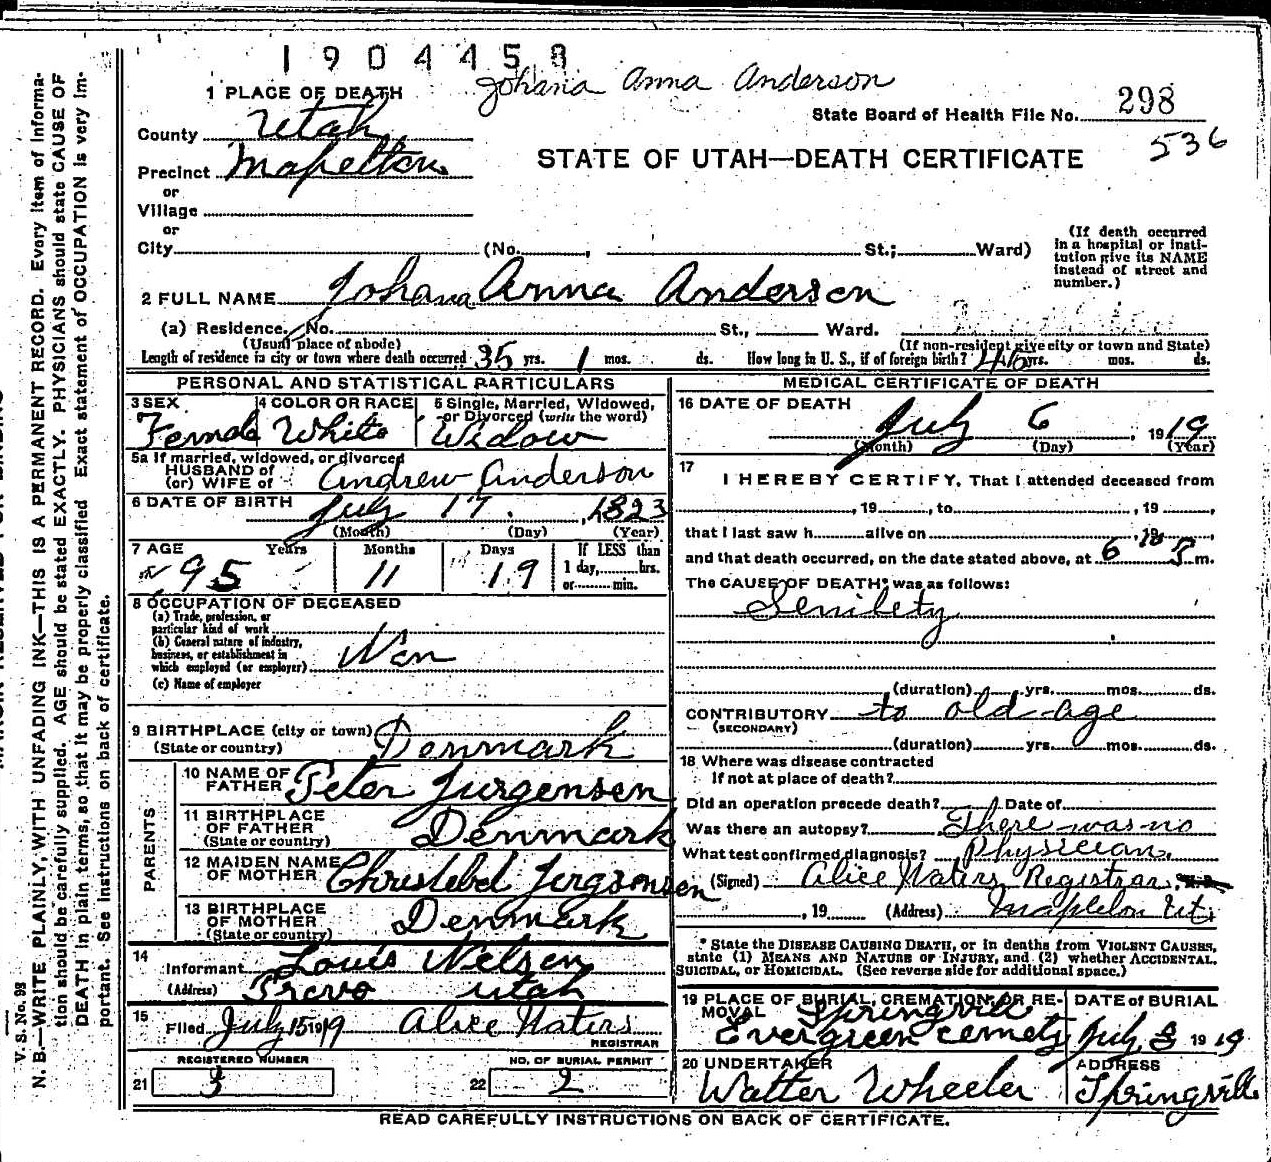 1904458
Johana Anna Anderson
1 PLACE OF DEATH
State Board of Health File No. 298
County Utah
536
STATE OF UTAH—DEATH CERTIFICATE
Precinct Mapelton
or
Village
or
City (No. , St.; Ward)
(If death occurred in a hospital or insti-
tution give its NAME
instead of street and
number.)
2 FULL NAME Johana Anna Anderson
(a) Residence. No. St., Ward.
(Usual place of abode) (If non-resident give city or town and State)
Length of residence in city or town where death occurred 35 yrs. 1 mos. ds. How long in U. S., if of foreign birth? 46 yrs. mos. ds.
PERSONAL AND STATISTICAL PARTICULARS
3 SEX Female
4 COLOR OR RACE White
5 Single, Married, Widowed,
or Divorced (write the word)
Widow
5a If married, widowed, or divorced
HUSBAND of
(or) WIFE of Andrew Anderson
6 DATE OF BIRTH July 17. , 1823
(Month) (Day) (Year)
7 AGE Years Months Days If LESS than
1 day, hrs.
or min.
95 11 19
8 OCCUPATION OF DECEASED
(a) Trade, profession, or
particular kind of work
(b) General nature of industry,
business, or establishment in
which employed (or employer)
(c) Name of employer
9 BIRTHPLACE (city or town)
(State or country) Denmark
PARENTS
10 NAME OF
FATHER Peter Jurgensen
11 BIRTHPLACE
OF FATHER
(State or country) Denmark
12 MAIDEN NAME
OF MOTHER
13 BIRTHPLACE
OF MOTHER
(State or country) Denmark
14
Informant Louis Nelsen
(Address) Provo Utah
15
Filed July 15 1919 Alice Waters
REGISTRAR
REGISTERED NUMBER
21 3
NO. OF BURIAL PERMIT
22 2
MEDICAL CERTIFICATE OF DEATH
16 DATE OF DEATH
July 6 , 1919
(Month) (Day) (Year)
17
I HEREBY CERTIFY, That I attended deceased from
, 19 , to , 19 ,
that I last saw h alive on 19
and that death occurred, on the date stated above, at 6 P m.
The CAUSE OF DEATH* was as follows:
Senilety
(duration) yrs. mos. ds.
CONTRIBUTORY to old age
(SECONDARY)
(duration) yrs. mos. ds.
18 Where was disease contracted
If not at place of death?
Did an operation precede death? Date of
Was there an autopsy? There was no
What test confirmed diagnosis? Physician.
(Signed) Alice Waters Registrar, M.D.
, 19 (Address) Mapleton Ut.
* State the DISEASE CAUSING DEATH, or in deaths from VIOLENT CAUSES,
state (1) MEANS AND NATURE OF INJURY, and (2) whether ACCIDENTAL,
SUICIDAL, or HOMICIDAL. (See reverse side for additional space.)
19 PLACE OF BURIAL, CREMATION, OR RE-
MOVAL Springville
Evergreen cemety
DATE of BURIAL
July 8 1919
20 UNDERTAKER
Walter Wheeler
ADDRESS
Springville
READ CAREFULLY INSTRUCTIONS ON BACK OF CERTIFICATE.
V. S. No. 98
N. B.—WRITE PLAINLY, WITH UNFADING INK—THIS IS A PERMANENT RECORD. Every item of informa-
tion should be carefully supplied. AGE should be stated EXACTLY. PHYSICIANS should state CAUSE OF
DEATH in plain terms, so that it may be properly classified. Exact statement of OCCUPATION is very im-
portant. See instructions on back of certificate.